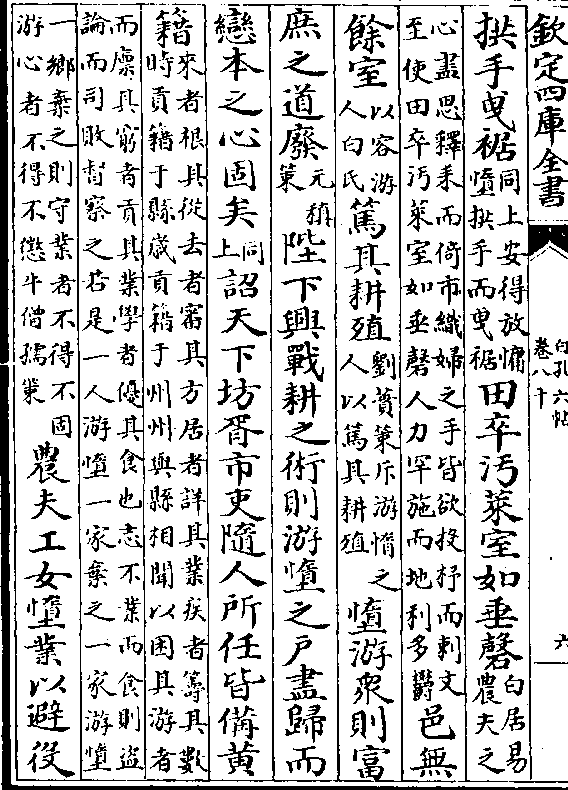 欽定四庫全書
白孔六帖
卷八十
六
拱手曳裾同上安得放慵憜拱手而曳裾田卒汚萊室如垂磬白居易農夫之
心盡思釋耒而倚市織婦之手皆欲投杼而刺文至使田卒汚萊室如垂磬人力罕施而地利多鬱邑無
餘室以容游人白氏篤其耕殖劉蕡策斥游惰之人以篤其耕殖憜游衆則富
庶之道廢元稹策陛下興戰耕之術則游憜之戶盡歸而
戀本之心固矣同上詔天下坊胥市吏隨人所任皆備黄
籍來者根其從去者審其方居者詳其業疾者籌其數時貢籍于縣歲貢籍于州州與縣相聞以困其游者
而廪其窮者貢其業學者優其食也志不業而食則盗論而司敗督察之若是一人游憜一家棄之一家游憜
一鄉棄之則守業者不得不固游心者不得不懲牛僧孺策農夫工女憜業以避役